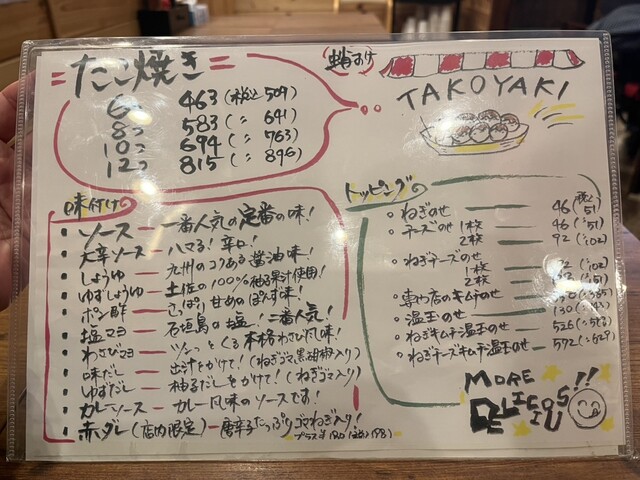 たこ焼き
6コ 463(税込509)
8コ 583(〃641)
10コ 694(〃763)
12コ 815(〃896)
TAKOYAKI
味付け
ソース ー 一番人気の定番の味!
大辛ソース ー ハマる!辛口!
しょうゆ ー 九州のコクある醤油味!
ゆずしょうゆ ー 土佐の100%柚果汁使用!
ポン酢 ー さっぱり甘めのぽんず味!
塩マヨ ー 石垣島の塩!二番人気!
わさびマヨ ー ツンっとくる本格わさび風味!
味だし ー 出汁をかけて!(ねぎゴマ、黒胡椒入り)
ゆずだし ー 柚るだしをかけて!(ねぎゴマ入り)
カレーソース ー カレー風味のソースです!
赤ダレ(店内限定) ー 唐辛子たっぷりゴマねぎ入り!
プラス¥180(税込198)
トッピング
ねぎのせ 46(税込51)
チーズのせ 1枚 46(〃51)
2枚 92(〃102)
ねぎチーズのせ
1枚 (〃102)
2枚
専門店のキムチのせ
温玉のせ 130
ねぎキムチ温玉のせ 526(〃579)
ねぎチーズキムチ温玉のせ 572(〃629)
MORE
DELICIOUS!!